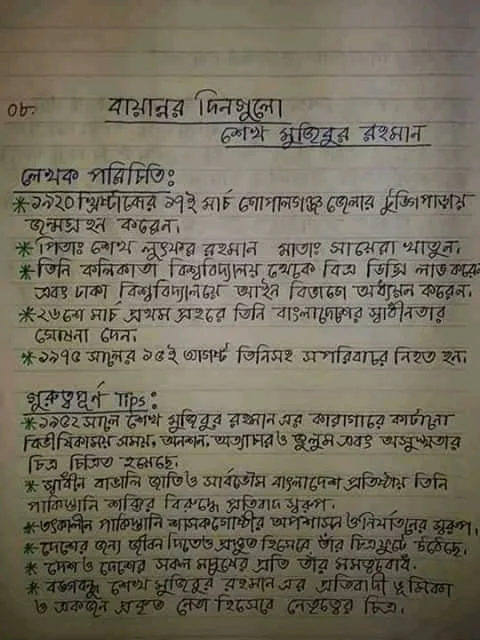 ০৮. বায়ান্নর দিনগুলো
শেখ মুজিবুর রহমান
লেখক পরিচিতিঃ
* ১৯২০ খ্রিষ্টাব্দের ১৭ই মার্চ গোপালগঞ্জ জেলার টুঙ্গিপাড়ায়
জন্মগ্রহন করেন।
* পিতাঃ শেখ লুৎফর রহমান মাতাঃ সায়েরা খাতুন।
* তিনি কলিকাতা বিশ্ববিদ্যালয় থেকে বিএ ডিগ্রি লাভ করেন
এবং ঢাকা বিশ্ববিদ্যালয়ে আইন বিভাগে অধ্যয়ন করেন।
* ২৬শে মার্চ প্রথম প্রহরে তিনি বাংলাদেশের স্বাধীনতার
ঘোষনা দেন।
* ১৯৭৫ সালের ১৫ই আগস্ট তিনিসহ সপরিবারে নিহত হন।
গুরুত্বপূর্ণ Tips:
* ১৯৫২ সালে শেখ মুজিবুর রহমান এর কারাগারে কাটানো
বিভীষিকাময় সময়, অনশন, অত্যাচার ও জুলুম এবং অসুস্থতার
চিত্র চিত্রিত হয়েছে।
* স্বাধীন বাঙালি জাতি ও সার্বভৌম বাংলাদেশ প্রতিষ্ঠায় তিনি
পাকিস্তানি শক্তির বিরুদ্ধে প্রতিবাদ স্বরূপ।
* তৎকালীন পাকিস্তানি শাসকগোষ্ঠীর অপশাসন ও নির্যাতনের স্বরূপ।
* দেশের জন্য জীবন দিতেও প্রস্তুত হিসেবে তাঁর চিত্র ফুটে উঠেছে।
* দেশ ও দেশের সকল মানুষের প্রতি তাঁর মমত্ববোধ।
* বঙ্গবন্ধু শেখ মুজিবুর রহমান এর প্রতিবাদী ভূমিকা
ও একজন প্রকৃত নেতা হিসেবে নেতৃত্বের চিত্র।